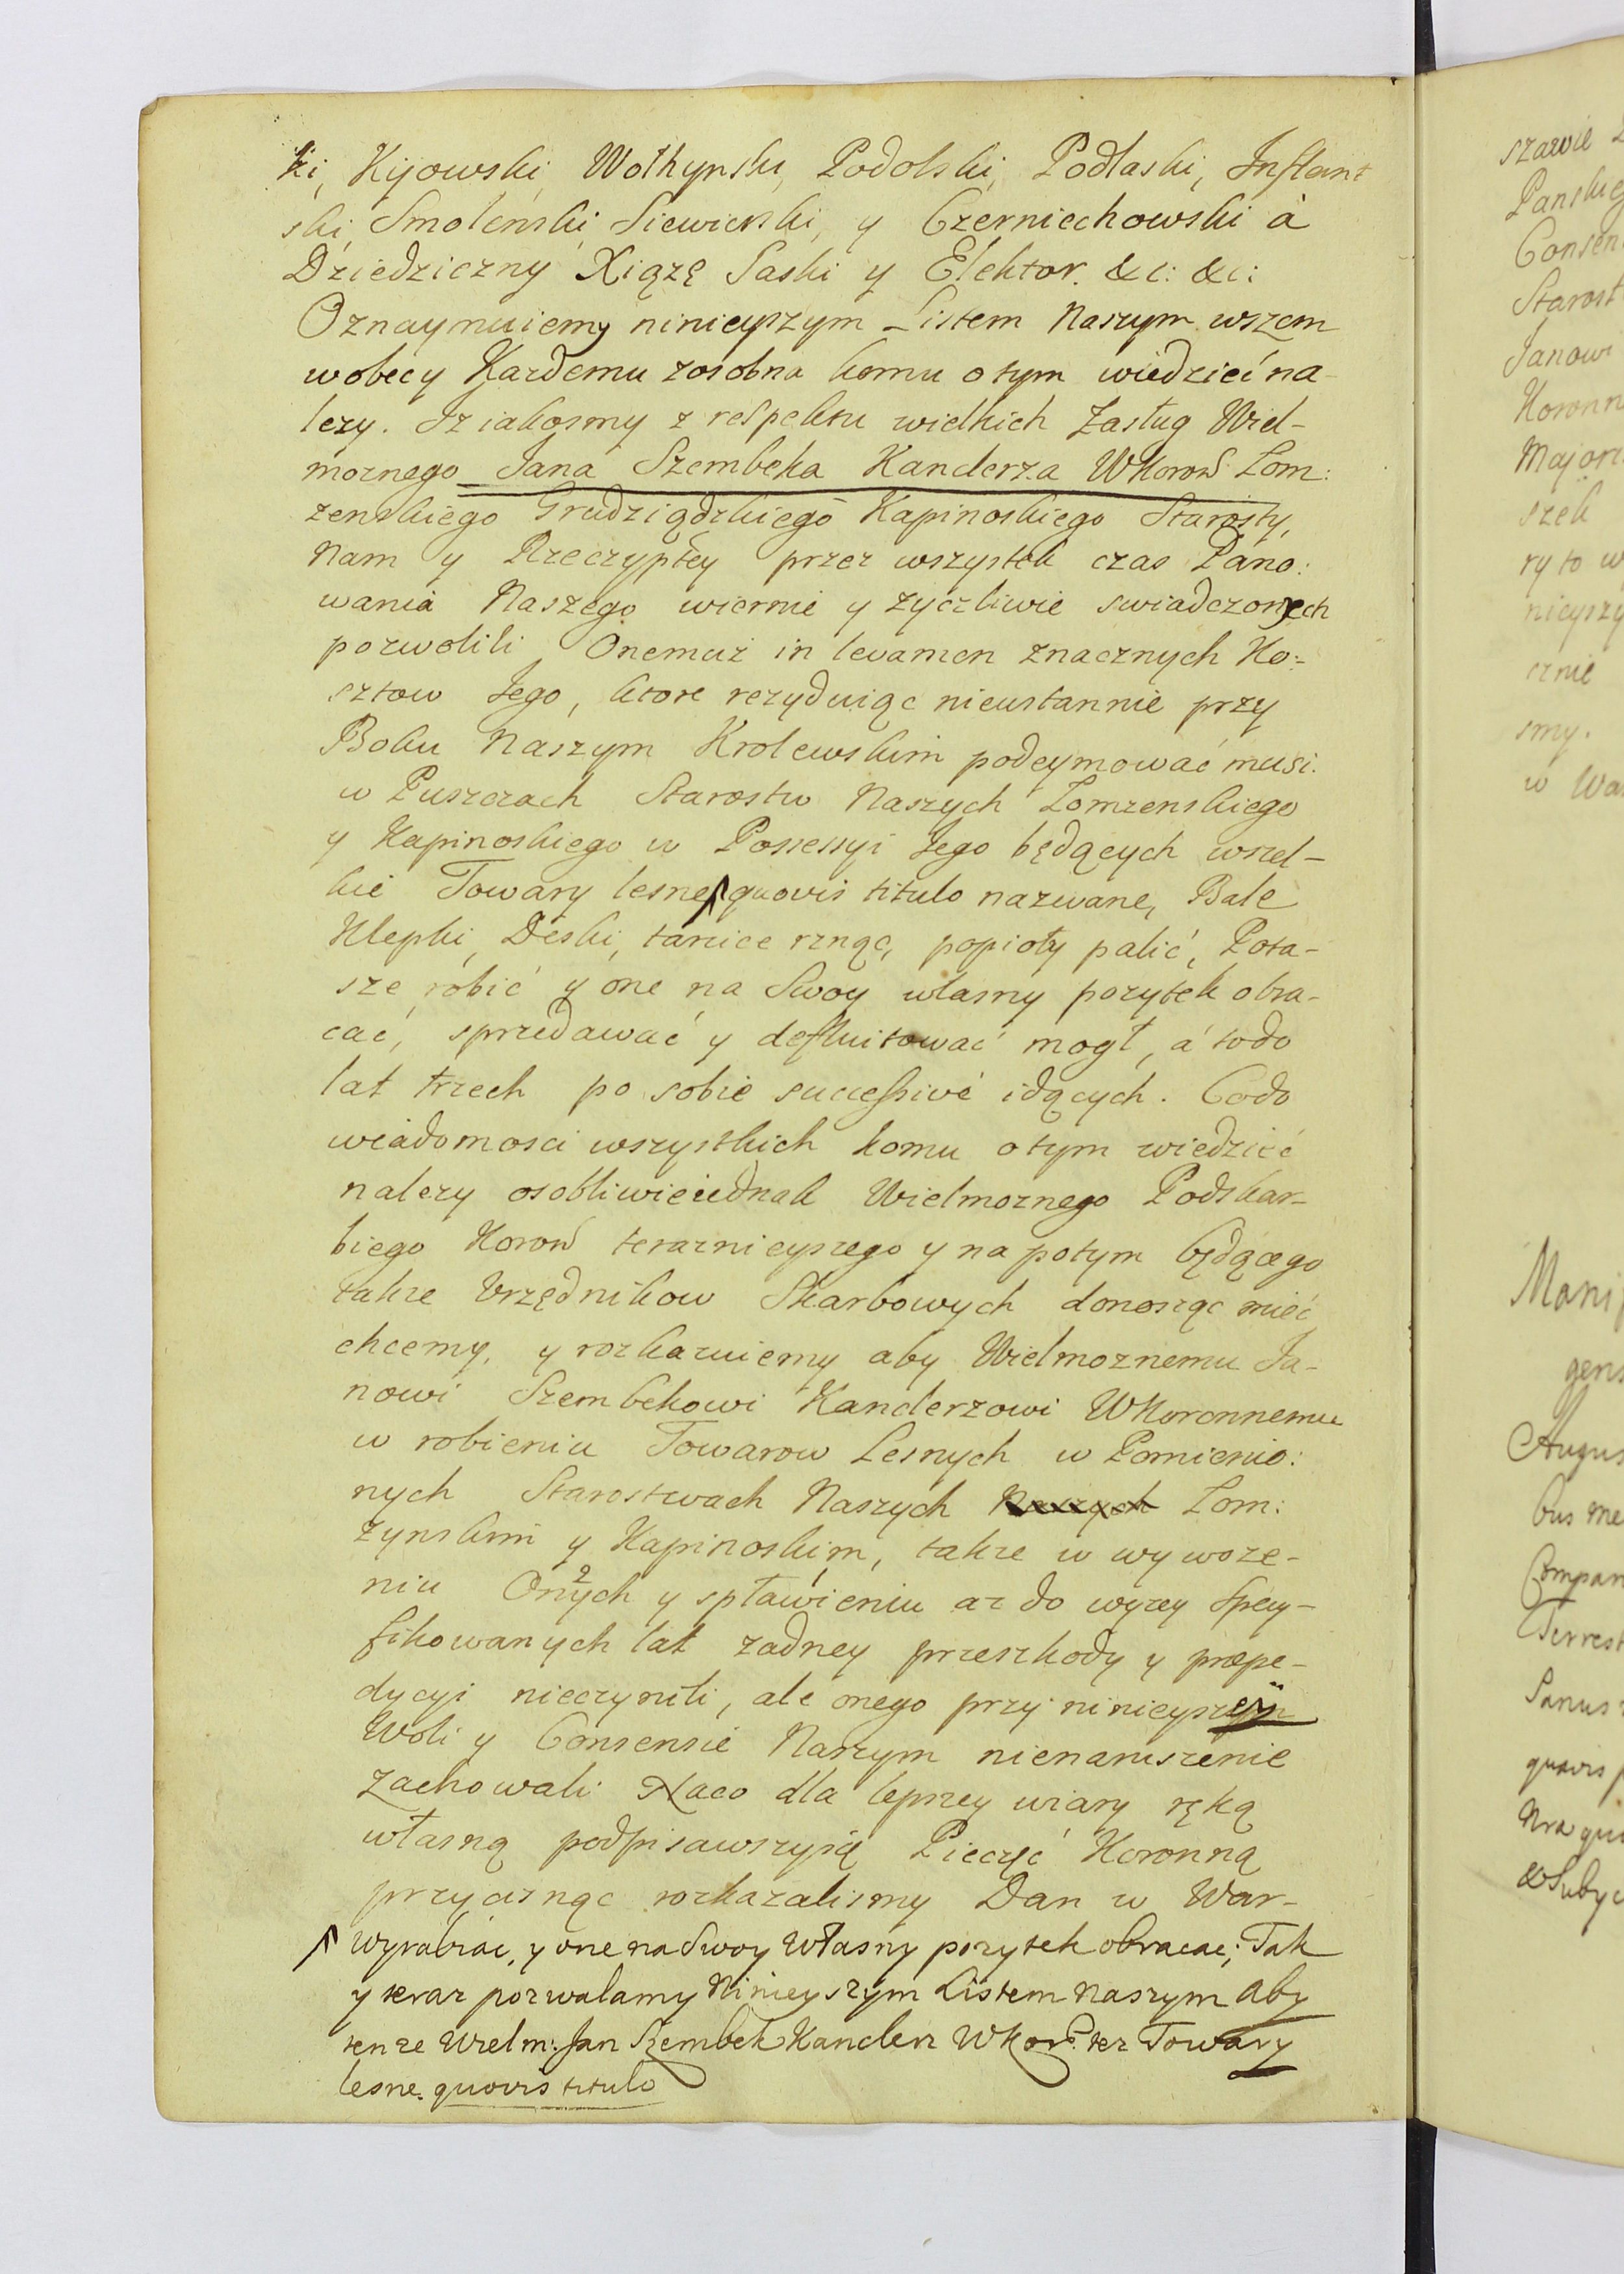 ki, Kijowski, Wołhynski, Podolski, Podlaski, Inflant
ski, Smolenski, Siewierski, y Czerniechowski à
Dziedziczny Xiązę Saski y Elektor. &c: &c:
Oznaymuiemy ninieyszym Listem Naszym wszem
wobecy Kazdemu zosobna komu o tym wiedzieć na-
lezy. Iz iakosmy z respektu wielkich Zasług Wiel-
moznego Jana Szembeka Kanclerza WKoroñ Lom:
zenskiego Grudziądzkiego Kapinoskiego Starosty,
Nam y Rzeczyptey przez wszystek czas Pano:
wania Naszego wiernie y zyczliwie swiadczonych
pozwolili Onemuż in levamen znacznych Ko:-
sztow Jego, ktore rezyduiąc nieustannie przy
Boku Naszym Krolewskim podeymować musi.
w Puszczach Starostw Naszych Lomzenskiego
y Kapinoskiego w Possessyi Jego będących wszel-
kie Towary lesne quovis titulo nazwane, Bale
Klepki, Deski, tarcice rznąc, popioły palić, Pota-
sze robić y one na Swoy własny pozytek obra-
cać, sprzedawać y defluitować mogł, á to do
lat trzech po sobie successivé idących. Co do
wiadomosci wszystkich komu o tym wiedzieć
nalezy osobliwie iednak Wielmoznego Podskar-
biego Koroñ terazniejszego y na potym będącego
takze Urzędnikow Skarbowych donosząc mieć
chcemy, y rozkazuiemy aby Wielmoznemu Ja-
nowi Szembekowi Kanclerzowi WKoronnemu
w robieniu Towarow Lesnych w Pomienio:
nych Starostwach Naszych Naszych Lom:
zynskim y Kapinoskim, takze w wywoze-
niu Onych y spławieniu az do wyzey specy-
fikowanych lat zadney przeszkody y præpe-
dycyi nieczynili, ale onego przy ninieyszeÿ
Woli y Consensie Naszym nienaruszenie
zachowali Naco dla lepszey wiary ręką
własną podpisawszysię Pieczęć Koronną
przycisnąc rozkazalismy Dan w War-
wyrabiac, y one na Swoy Własny pozytek obracac; Tak
y teraz pozwalamy Ninieyszym Listem Naszym aby
tenze Wielm: Jan Szembek Kanclerz WKoroñ. tez Towary
lesne quovis titulo